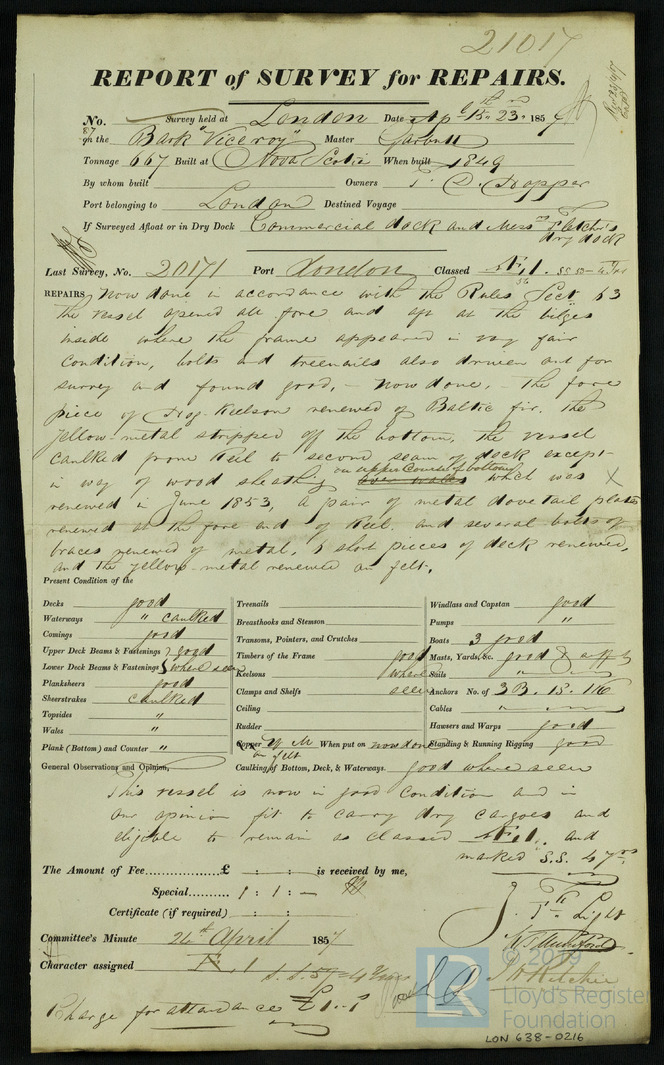 21017
REPORT of SURVEY for REPAIRS.
No. Survey held at London Date Apl 15th 23rd 1857
on the Bark "Viceroy" Master Garbutt
Tonnage 667 Built at Nova Scotia When built 1849
By whom built Owners T. D. Hopper
Port belonging to London Destined Voyage
If Surveyed Afloat or in Dry Dock Commercial dock and Messrs Fletcher's
dry dock
Last Survey, No. 20171 Port London Classed
REPAIRS now done in accordance with the Rules Sect 63
the vessel opened all fore and aft at the bilges
inside where the frame appeared in very fair
condition, bolts and treenails also driven out for
survey and found good, - now done, - the fore
piece of Hog. Keelson renewed of Baltic fir. the
yellow-metal stripped off the bottom, the vessel
caulked from Keel to second seam of deck except
in way of wood sheathing on upper Course of bottom which was X
renewed in June 1853, a pair of metal dovetail plates
renewed at the fore end of Keel. and several bolts of
braces renewed of metal, 6 short pieces of deck renewed,
and the yellow-metal renewed on felt.
Present Condition of the
Decks good
Waterways " caulked
Comings good
Upper Deck Beams & Fastenings good
Lower Deck Beams & Fastenings where seen
Planksheers good
Sheerstrakes caulked
Topsides "
Wales "
Plank (Bottom) and Counter "
General Observations and Opinion,
Treenails
Breasthooks and Stemson
Transoms, Pointers, and Crutches
Timbers of the Frame good
Keelsons where
Clamps and Shelfs seen
Ceiling
Rudder
Copper Y M When put on now done
on felt
Caulking of Bottom, Deck, & Waterways. good where seen
Windlass and Capstan good
Pumps "
Boats 3 good
Masts, Yards, &c. good
Sails "
Anchors No. of 3 B. 1 S. 1 K
Cables "
Hawsers and Warps good
Standing & Running Rigging good
This vessel is now in good condition and in
our opinion fit to carry dry cargoes and
eligible to remain as classed and
marked S.S. 4 yrs
The Amount of Fee £ : : is received by me,
Special 1 : 1 : -
Certificate (if required) : :
J. Light
Committee's Minute 24th April 1857
Character assigned
J. Ritchie
Charge for attendance £1.1
© 2019
Lloyd's Register
Foundation
LR
LON 638-0216